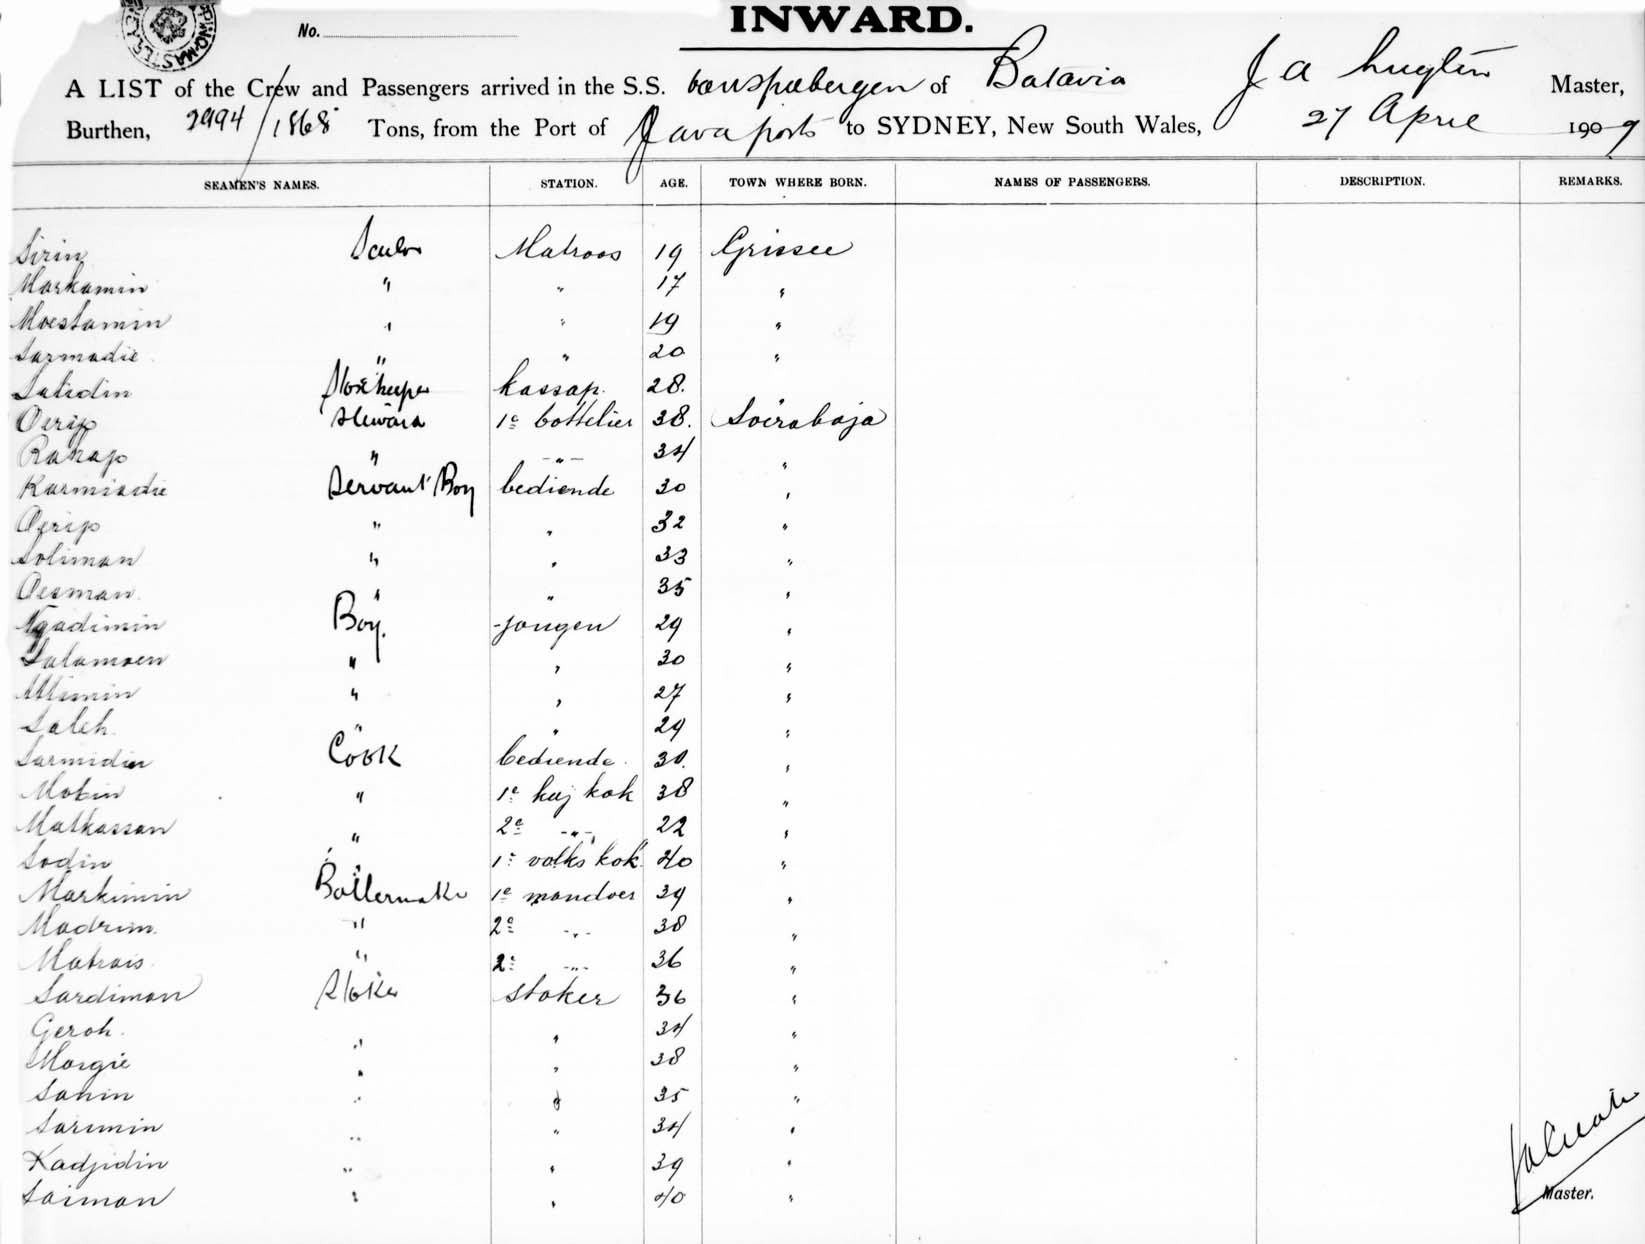 INWARD.
No.
A LIST of the Crew and Passengers arrived in the S.S. of Batavia J a Master,
Burthen, 2994/1868 Tons, from the Port of Java ports to SYDNEY, New South Wales, 27 April 1909
SEAMEN'S NAMES. STATION. AGE. TOWN WHERE BORN. NAMES OF PASSENGERS. DESCRIPTION. REMARKS.
Sirin Matroos 19 Grissee
Markamin " " 17 "
Moestamin " " 19 "
Sarmadie " " 20 "
Salidin Storekeeper kassap. 28. "
Oerip Steward 1e bottelier 38. Soerabaja
Ranap " " 34 "
Karmiadie Servant Boy bediende 30 "
Oerip " " 32 "
Soliman " " 33 "
Oesman " " 35 "
Ngadimin Boy. jongen 29 "
Salamoen " " 30 "
" " 27 "
Saleh " " 29 "
Sarmidin Cook bediende 30. "
Mobin " 1e kok 38 "
Matkassan " 2e " 22 "
Sodin " 1e volks kok 40 "
Markimin Boilermaker 1e mandoer 39 "
Madrim. " 2e " 38 "
Matrais. " 2e " 36 "
Sardiman Stoker stoker 36 "
Geroh. " " 34 "
Morgie " " 38 "
Sanin " " 35 "
Sarimin " " 34 "
Kadjidin " " 39 "
Saiman " " 40 "
Master.